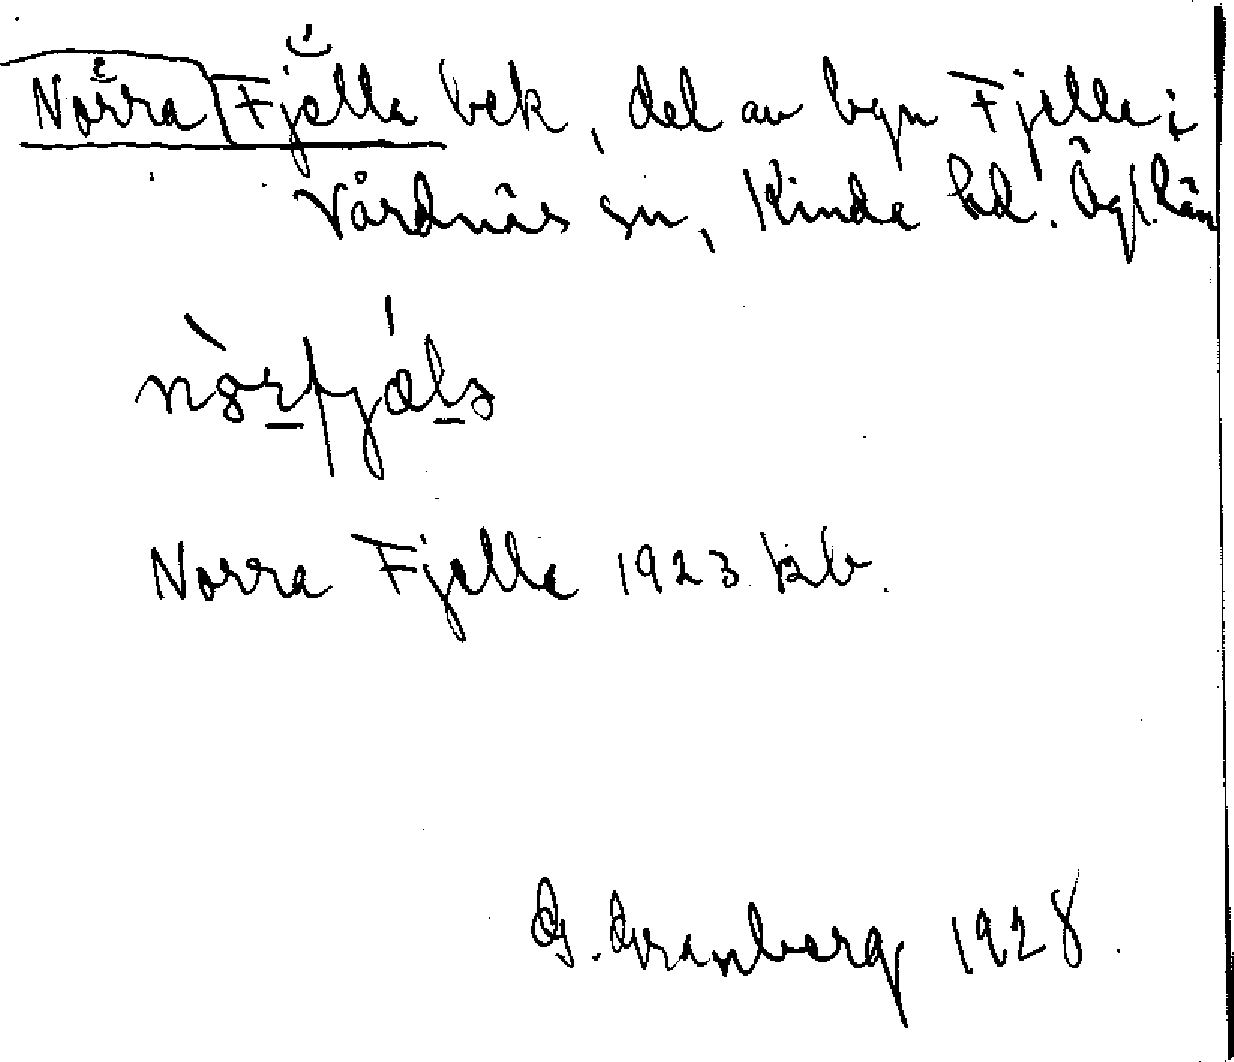 Norra Fjelle bek, del av byn Fjelle i
Vårdnäs sn, Kinda hd. Ögl. län
Norra Fjelle 1923 kb.
G. Granberg 1928.